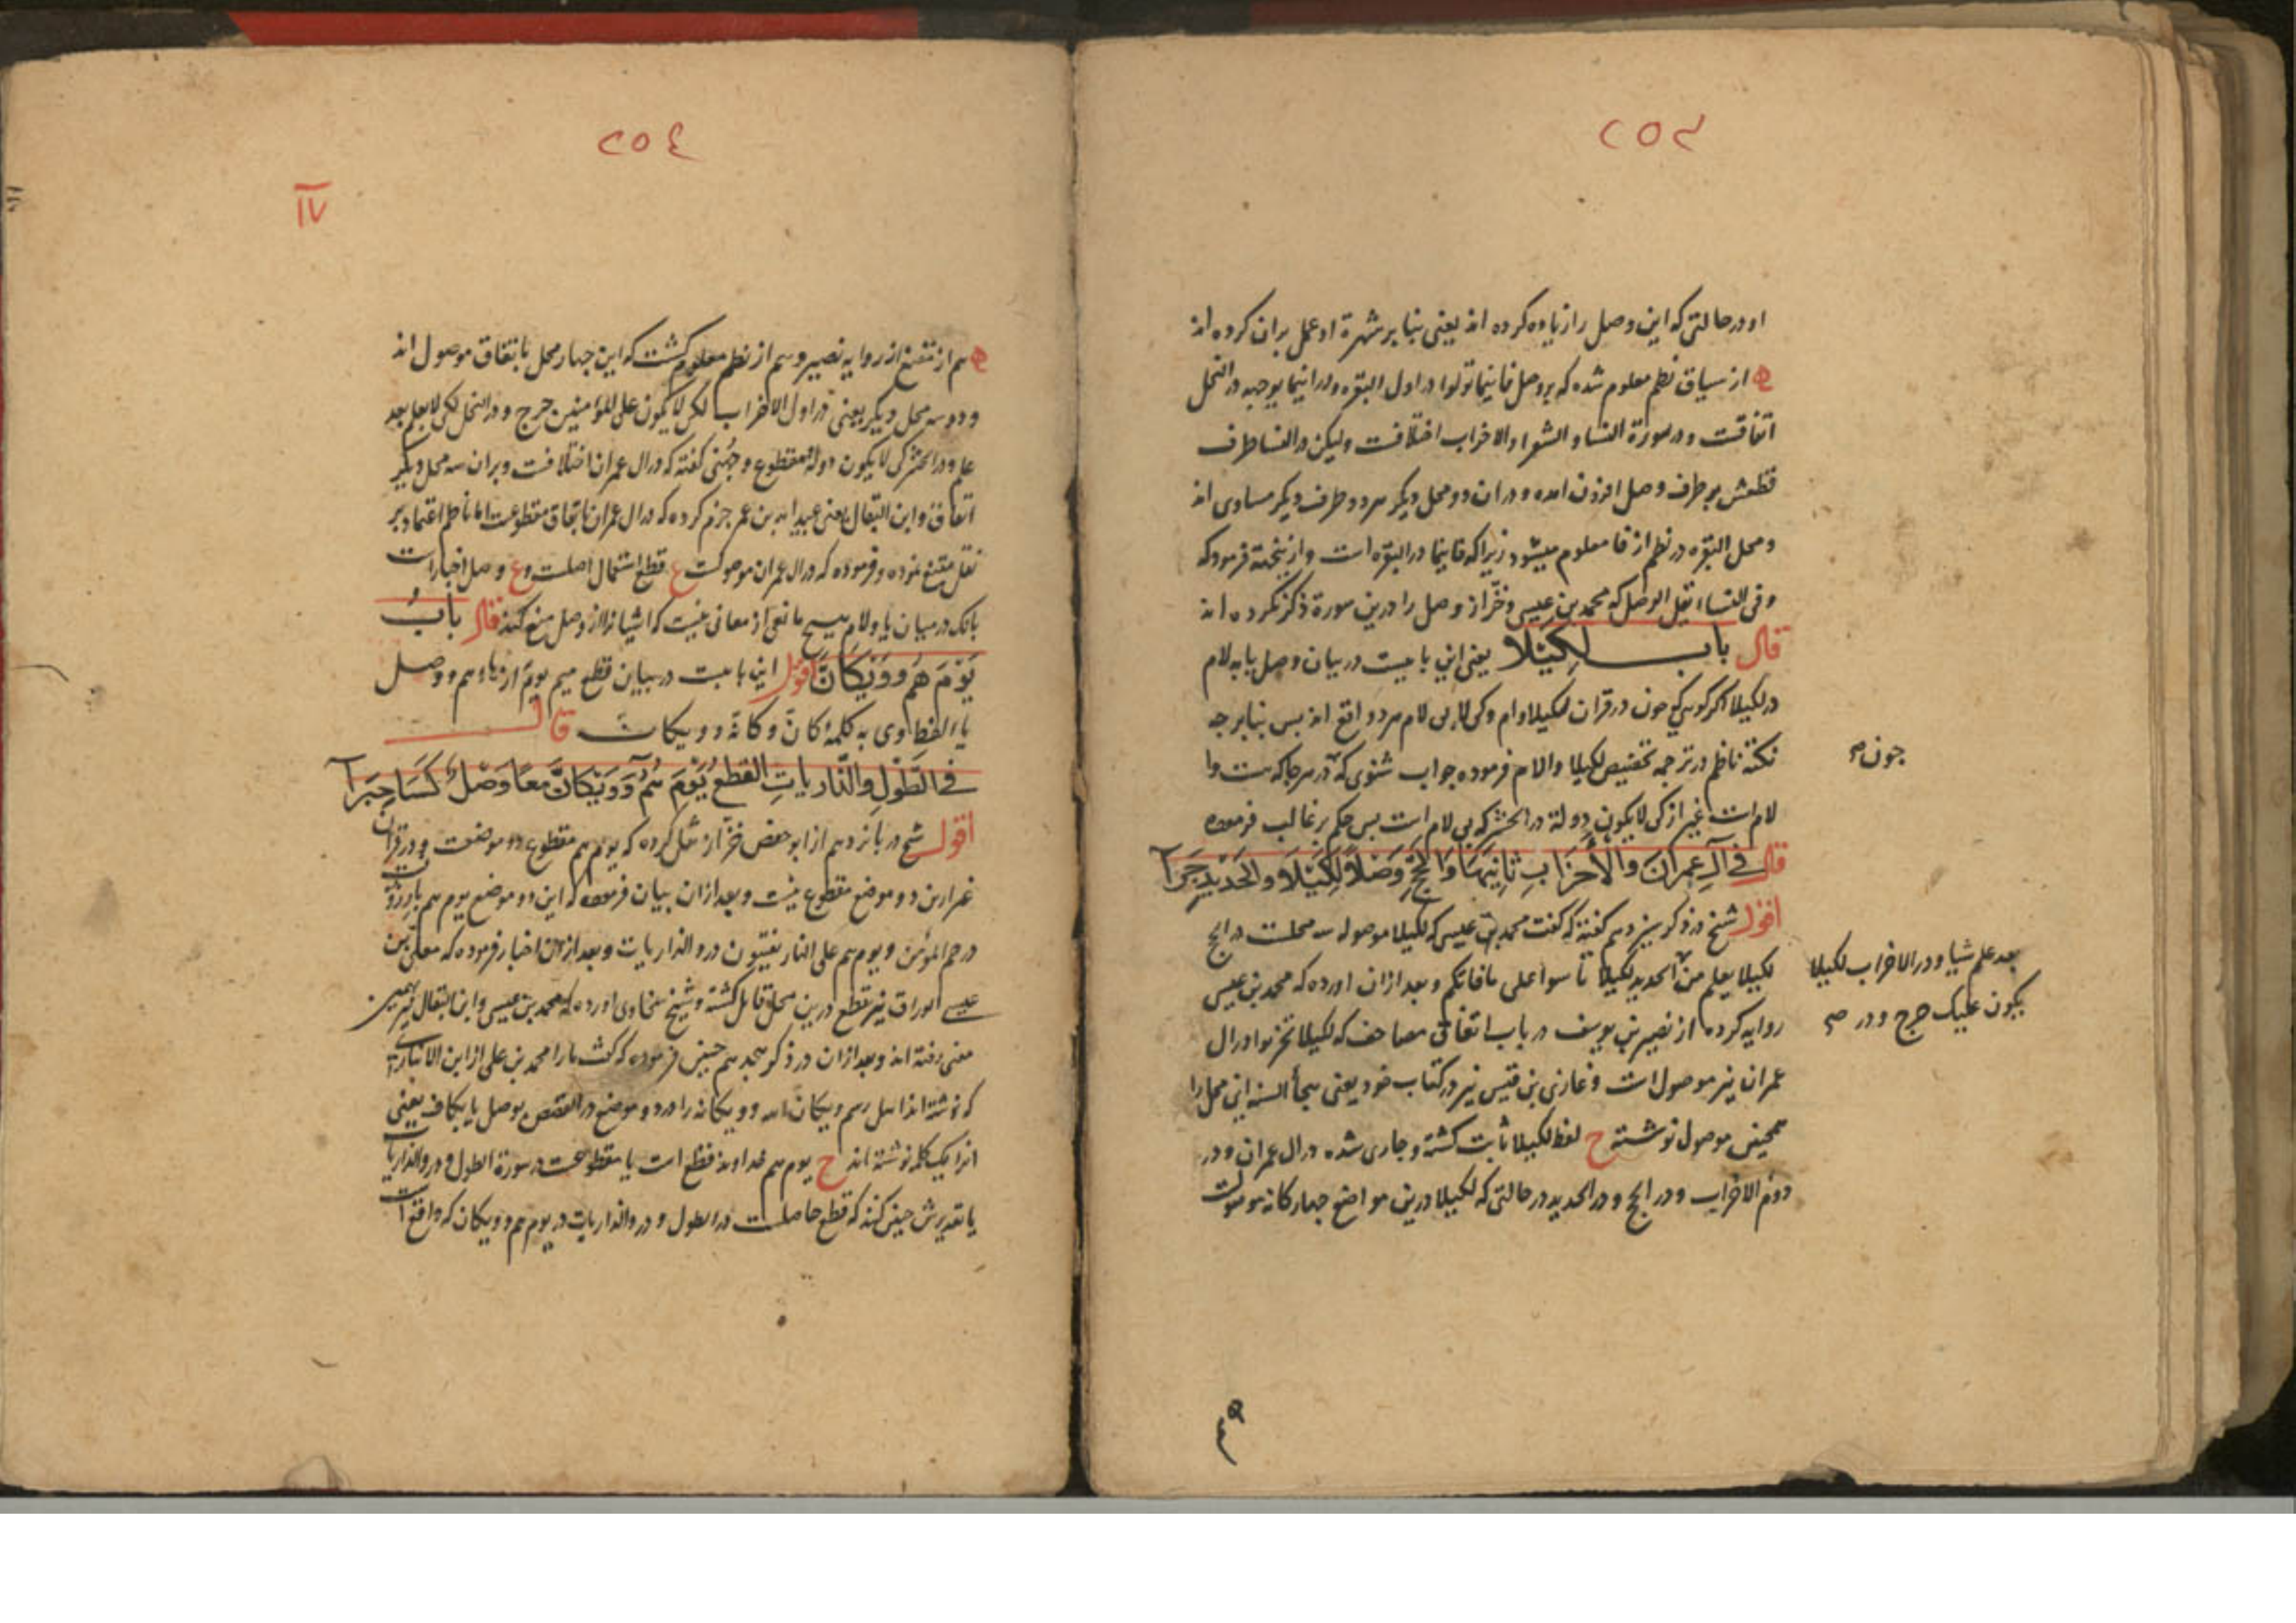 ٢٥٣
او در حالتی که این وصل را زیاده کرده اند یعنی بنا بر شهرة او عمل بران کرده اند
از سیاق نظم معلوم شده که بر وصل فاینما تولوا در اول البقره و در اینما یوجهه در النحل
اتفاقست و در سورة النسا و الشعرا و الاحزاب اختلافست و لیکن در النسا طرف
قطعش بر طرف وصل افزون امده و در ان دو محل دیگر هر دو طرف دیگر مساوی اند
و محل البقره در نظم از فا معلوم میشود زیرا که فاینما در البقره است و از ینجهة فرمود که
و فی النساء یقل الوصل که محمد بن عیسی و خرّاز وصل را درین سورة ذکر نکرده اند
قال باب لكيلا یعنی این بابیست در بیان وصل یا به لام
در لکیلا اگر گویی که چون در قران لکیلا و ام و کی لا بی لام هر دو واقع اند پس بنا بر چه
نکتة ناظم در ترجمه تخصیص لکیلا و الام فرموده جواب شنوی که در هر جا که هست وا
لام است غیر از کی لا یکون دولة در الحشر که بی لام است پس حکم بر غالب فرموده
قال في آل عمران والأحزاب ثانيها والحج وصلا لكيلا والحديد جرا
اقول شیخ در ذکر سیزدهم گفته که گفت محمد بن عیسی که لکیلا موصوله سه محلست در الحج
لکیلا یعلم من الحدید لکیلا تأسوا علی ما فاتکم و بعد ازان اورده که محمد بن عیسی
روایه کرده از نصیر بن یوسف در باب اتفاق مصاحف که لکیلا تحزنوا در ال
عمران نیز موصول است و غازی بن قیس نیز در کتاب خود یعنی هجاء السنه این محل را
همچنین موصول نوشته ح لفظ لکیلا ثابت گشته و جاری شده در ال عمران و در
دوم الاحزاب و در الحج و در الحدید در حالتی که لکیلا درین مواضع چهارگانه موصولست
چون صح
بعد علم شیا و در الاحزاب لکیلا
یکون علیک حرج و در صح
٢٥٤
١٧
هم از مقنع از روایه نصیر و هم از نظم معلوم گشت که این چهار محل باتفاق موصول اند
و دو سه محل دیگر یعنی در اول الاحزاب لکی لا یکون علی المؤمنین حرج و در النحل لکی لا یعلم بعد
علم و در الحشر کی لا یکون دولة مقطوع و جهنی گفته که در ال عمران اختلافست و بران سه محل دیگر
اتفاق و ابن البقال یعنی عبید الله بن عمر جزم کرده که در ال عمران باتفاق مقطوعست اما ناظم اعتماد بر
نقل مقنع نموده و فرموده که در ال عمران موصولست ع قطع استمال اصلست و ع وصل اخبارست
بانک در میان یا و لام هیچ مانعی از معانی نیست که ایشانرا از وصل منع کند قال باب
يوم هم وويكأن اقول این بابیست در بیان قطع میم یوم از هاء هم و وصل
یاء لفظ اوی به کلمۀ کأنّ و کأنه و ویکان قال
في الطول والذاريات القطع يوم هم وويكأن معا وصل كسا حبرا
اقول شیخ در پانزدهم از ابو حفص خزّاز نقل کرده که یوم هم مقطوع دو موضعست و در قران
غیر ازین دو موضع مقطوع نیست و بعد ازان بیان فرموده که این دو موضع یوم هم بارزون
در حم المؤمن و یوم هم علی النار یفتنون در و الذاریات و بعد ازان اخبار فرموده که معلی بن
عیسی الوراق نیز بقطع درین محل قایل گشته و شیخ سخاوی اورده که محمد بن عیسی و ابن البقال نیز بهمین
معنی رفته اند و بعد ازان در ذکر هجدهم چنین فرموده که گفت ما را محمد بن علی از ابن الانباری
که نوشته اند اهل رسم ویکان الله و ویکانه را در دو موضع در القصص بوصل یا بکاف یعنی
انرا یک کلمه نوشته اند ح یوم هم خداوند قطع است یا مقطوعست در سورة الطول و در و الذاریات
یا تقدیرش چنین کنند که قطع حاصلست در الطول و در و الذاریات در یوم هم و ویکان که واقع است